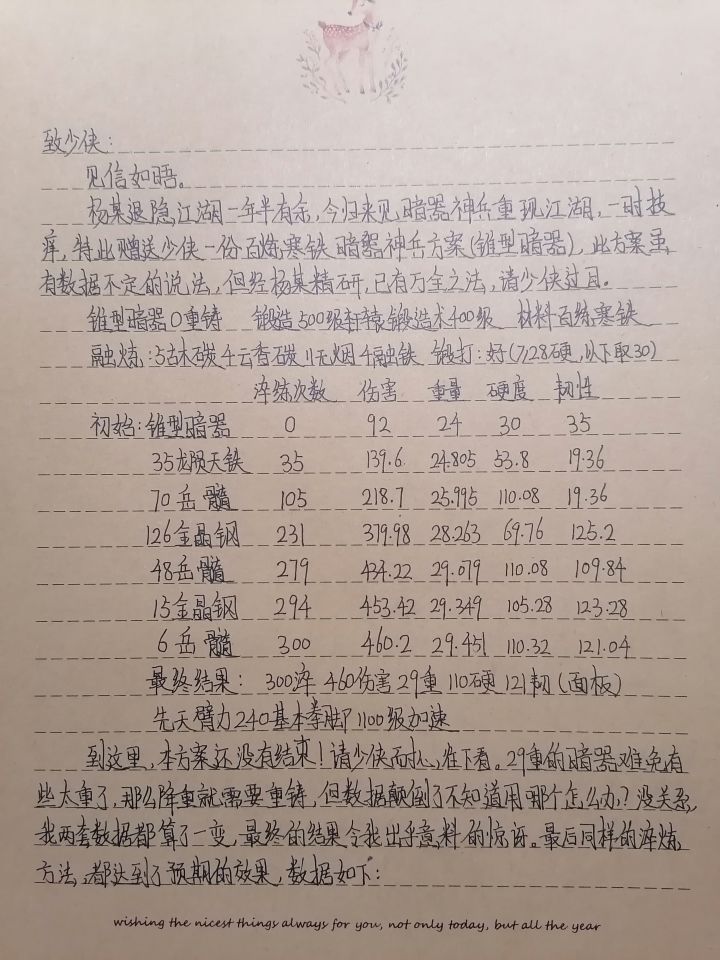 致少侠：
见信如晤。
杨某退隐江湖一年半有余，今归来见暗器神兵重现江湖，一时技
痒，特此赠送少侠一份百炼寒铁暗器神兵方案(锥型暗器)，此方案虽
有数据不定的说法，但经杨某精研，已有万全之法，请少侠过目。
锥型暗器0重铸 锻造500级轩辕锻造术400级 材料百练寒铁
融炼：5古木碳4云香碳11无烟4融铁 锻打：好(7/28硬，以下取30)
淬练次数 伤害 重量 硬度 韧性
初始：锥型暗器 0 92 24 30 35
35龙陨天铁 35 139.6 24.805 53.8 19.36
70岳髓 105 218.7 25.995 110.08 19.36
126金晶钢 231 379.98 28.263 69.76 125.2
48岳髓 279 434.22 29.079 110.08 109.84
15金晶钢 294 453.42 29.349 105.28 123.28
6岳髓 300 460.2 29.451 110.32 121.04
最终结果： 300淬 460伤害 29重 110硬 121韧(面板)
先天臂力240基本拳脚1100级加速
到这里，本方案还没有结束！请少侠耐心往下看。29重的暗器难免有
些太重了，那么降重就需要重铸，但数据颠倒了不知道用哪个怎么办？没关系，
我两套数据都算了一变，最终的结果令我出乎意料的惊讶。最后同样的淬炼
方法，都达到了预期的效果，数据如下：
wishing the nicest things always for you, not only today, but all the year